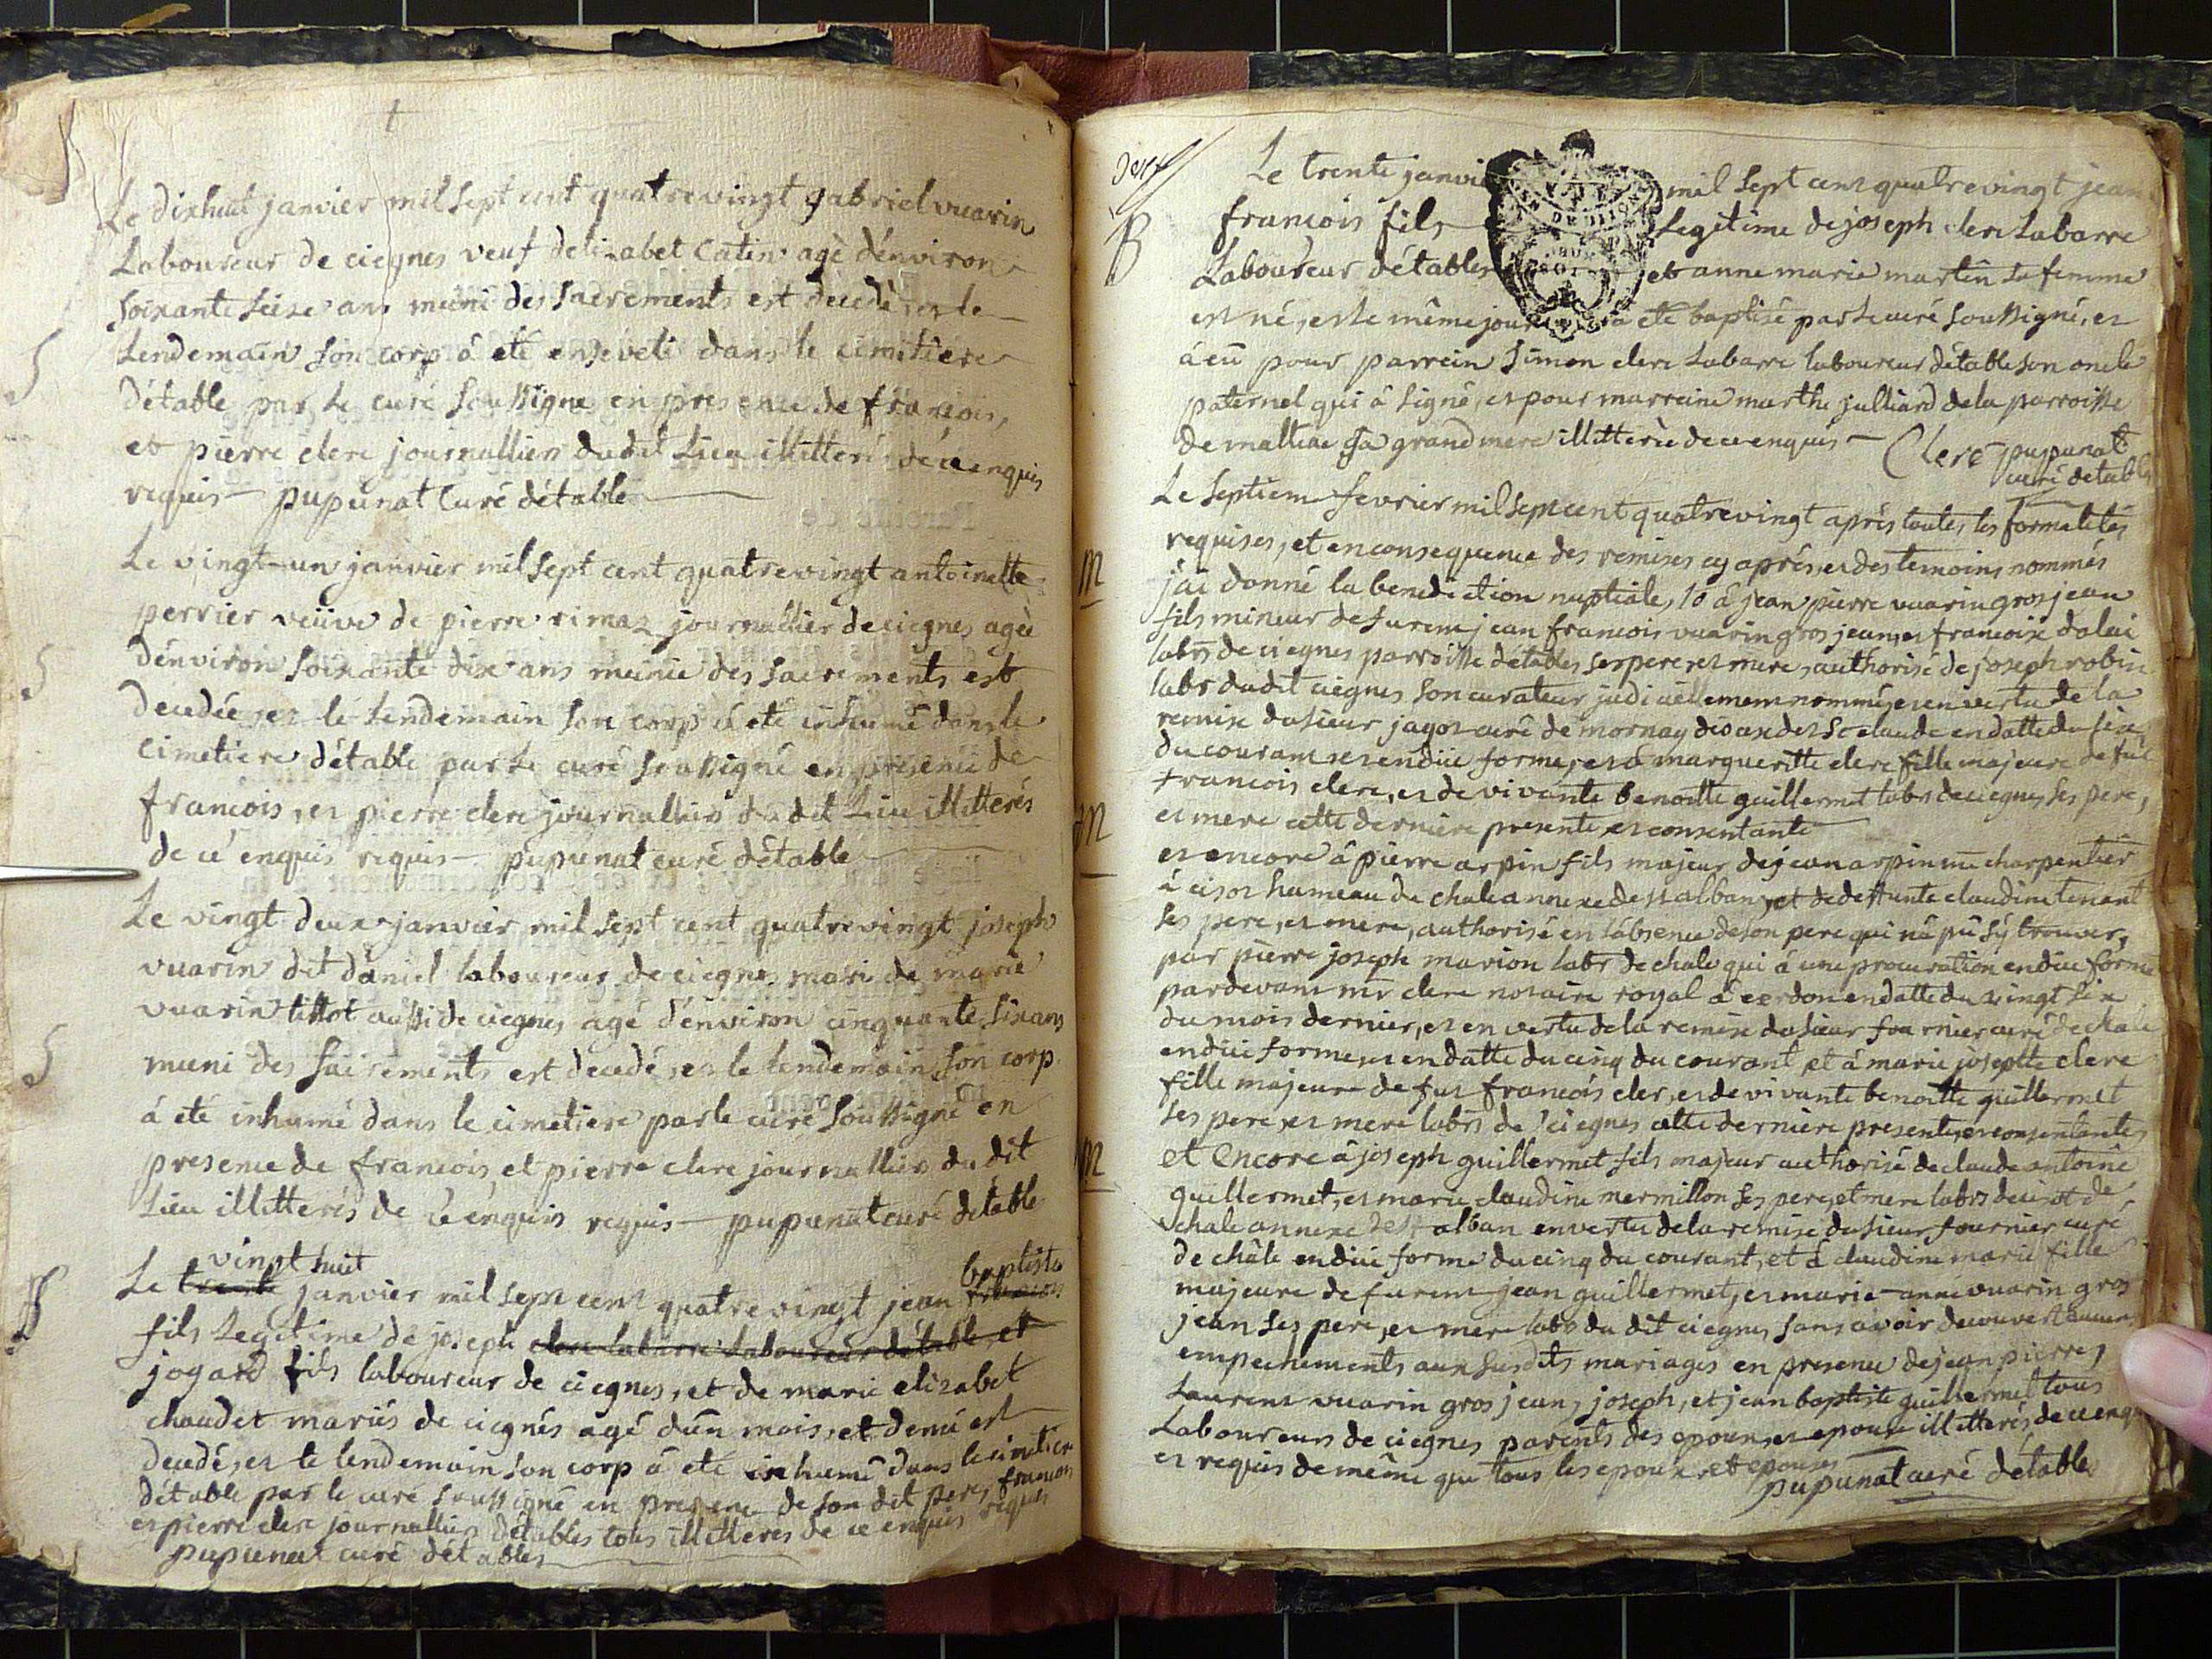 Le dixhuit janvier mil sept cent quatrevingt gabriel vuarin
Laboureur de ciegnes veuf delizabet Catin agè dénviron
soixante seise ans muni des sacrements est decedè, et le
Lendemain son corp á eté enseveli dans le cimitiere
détable par le curé soussigne en presence de francois,
et pierre clerc journalliers dudit Lieu illitteré de ce enquis
requis — pupunat Curé détable
S
Le vingt-un janvier mil sept cent quatrevingt antoinette
perrier veüve de pierre rimaz journallier deciegnes agée
dénviron soixante dix ans munie des sacrements est
decedée, et le lendemain son corp á eté inhumé dans le
cimetiere détable par le curé soussigné en presence de
francois, et pierre clerc journalliers dudit Lieu illitterés
de ce enquis requis — pupunat curé détable
S
Le vingt deux janvier mil sept cent quatrevingt joseph
vuarin dit daniel laboureur de ciegnes mari de marie
vuarin tissot aussi de ciegnes agé dénviron cinquante six ans
muni des sacrements est decedé, et le lendemain son corp
á eté inhumé dans le cimetiere par le curé soussigné en
presence de francois, et pierre clerc journalliers du dit
Lieu illitterés de ce enquis requis — pupunat curé détable
S
vingt huit
baptiste
Le trente janvier mil sept cent quatrevingt jean francois
fils Legitime de joseph clerc labarre laboureur détable et
jogard fils laboureur de ciegnes, et de marie elizabet
chaudet mariés de ciegnes agé dún mois, et demi est
decedé, et le lendemain son corp á eté inhumé dans le cimetiere
détable par le curé soussigné en presence de son dit pere, francois
et pierre clerc journalliers détables tous illitteres de ce enquis requis
pupunat curé détables
Le trente janvi mil sept cent quatrevingt jean
B
francois fils Legitime de joseph clerc Labarre
Laboureur détables et anne marie martin sa femme
est né, et le même jour a eté baptisé par le curé soussigné, et
á eü pour parrein simon clerc Labarre laboureur détable son oncle
paternel qui á signé, et pour marreine marthe julliard de la parroisse
de malliac sa grand mere illitterèe de ce enquis — Clerc pupunat
curé détable
Le septiem fevrier mil sept cent quatrevingt aprés toutes les formalités
requises, et en consequence des remises cy aprés, et des temoins nommés
M
j'ai donné la benediction nuptiale, 1o á jean pierre vuarin gros jean
fils mineur de furent jean francois vuarin gros jean, et francoise dalai
labrs de ciegnes parroisse détables ses pere, et mere, authorisé de joseph robin
labr dudit ciegnes son curateur judiciellement nommé, et en vertu de la
remise du sieur jagot curé de mornay en datte du six
du courant et en düe forme, et á marguerite clerc fille majeure de fut
francois clerc, et de vivante benoitte guillermet labrs de ciegnes ses pere,
et mere cette derniere presente, et consentante
M
et encore á pierre arpin fils majeur de jean arpin charpentier
á cisot hameau du chale annexe de st alban, et de deffunte claudine tenant
ses pere, et mere, authorisé en l'absence de son pere qui ná pü sy trouver,
par pierre joseph marion labr de chale qui á une procuration en düe forme
pardevant mr clerc notaire royal á cerdon en datte du vingt six
du mois dernier, et en vertu de la remise du sieur fournier curé de chale
en düe forme, et en datte du cinq du courant et á marie josephte clerc
fille majeure de fut francois clerc, et de vivante benoitte guillermet
ses pere, et mere labrs de ciegnes cette derniere presente, et consentante
M
et Encore á joseph guillermet fils majeur authorisé de claude antoine
guillermet, et marie claudine mermillon ses pere, et mere labrs de cisot de
chale annexe de st alban en vertu de la remise du sieur fournier curé
de châle en düe forme du cinq du courant, et á claudine marie fille
majeure de furent jean guillermet, et marie-anne vuarin gros
jean ses pere, et mere labrs du dit ciegnes sans avoir decouvert aucuns
empechements aux susdits mariages en presence de jean pierre,
Laurent vuarin gros jean, joseph, et jean baptiste guillermet tous
Laboureurs de ciegnes parents des epoux, et epouse illitterés de ce enquis
et requis de même que tous les epoux, et epouses
pupunat curé détables